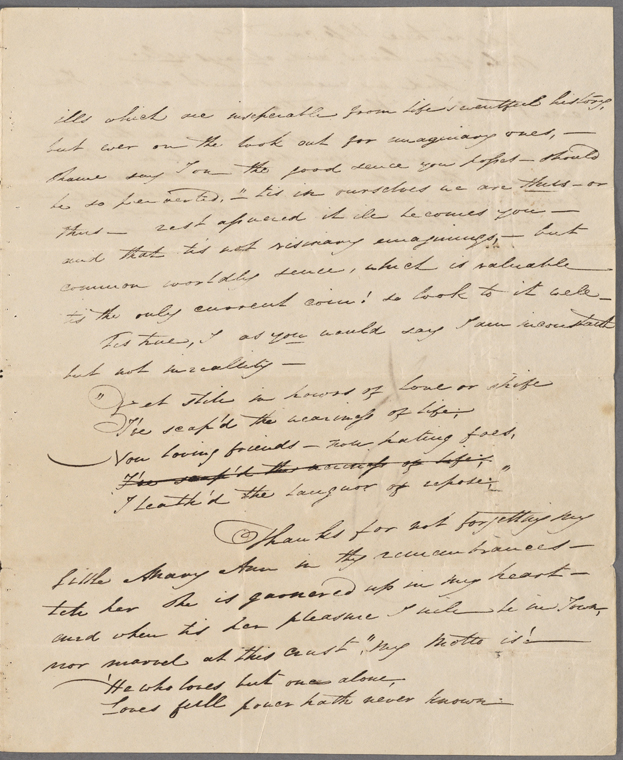 ills which are inseperable from life's eventful history,
but ever on the look out for imaginary ones, —
shame say I on the good sence you profess — should
be so perverted, "tis in ourselves we are thus — or
thus — rest assured it ill becomes you —
and that tis not visionary emaginings, — but
common worldly sence, which is valuable
tis the only current coin! so look to it well —
Tis true, I as you would say I am inconstant
but not in reallity —
"Yet still in howrs of Love or strife
I've scap'd the wearings of life;
Now loving friends — now hating foes,
I've scap'd the wearings of life;
I loath'd the languor of repose;"
Thanks for not forgetting my
little Mary Ann in thy remembrances —
tell her she is garnered up in my heart —
and when tis her pleasure I will be in Town,
nor marvel at this "my Motto is" —
"He who loves but one alone,
Loves full power hath never known